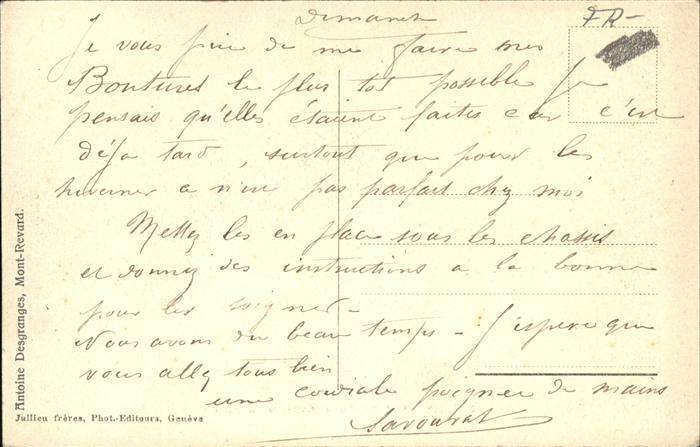 Dimanche
FR-
Je vous prie de me faire mes
Boutures le plus tot possible Je
pensais qu'elles étaient faites car c'est
déja tard, surtout que pour les
hiverner a n'est pas parfait chez moi
Mettez les en place sous les chassis
et donnez des instructions a la bonne
pour les soigner-
Nous avons du beau temps - J'espere que
vous allez tous bien
une cordiale poignee de mains
Savourat
Antoine Desgranges, Mont-Revard.
Jullien frères, Phot.-Editeurs, Genève